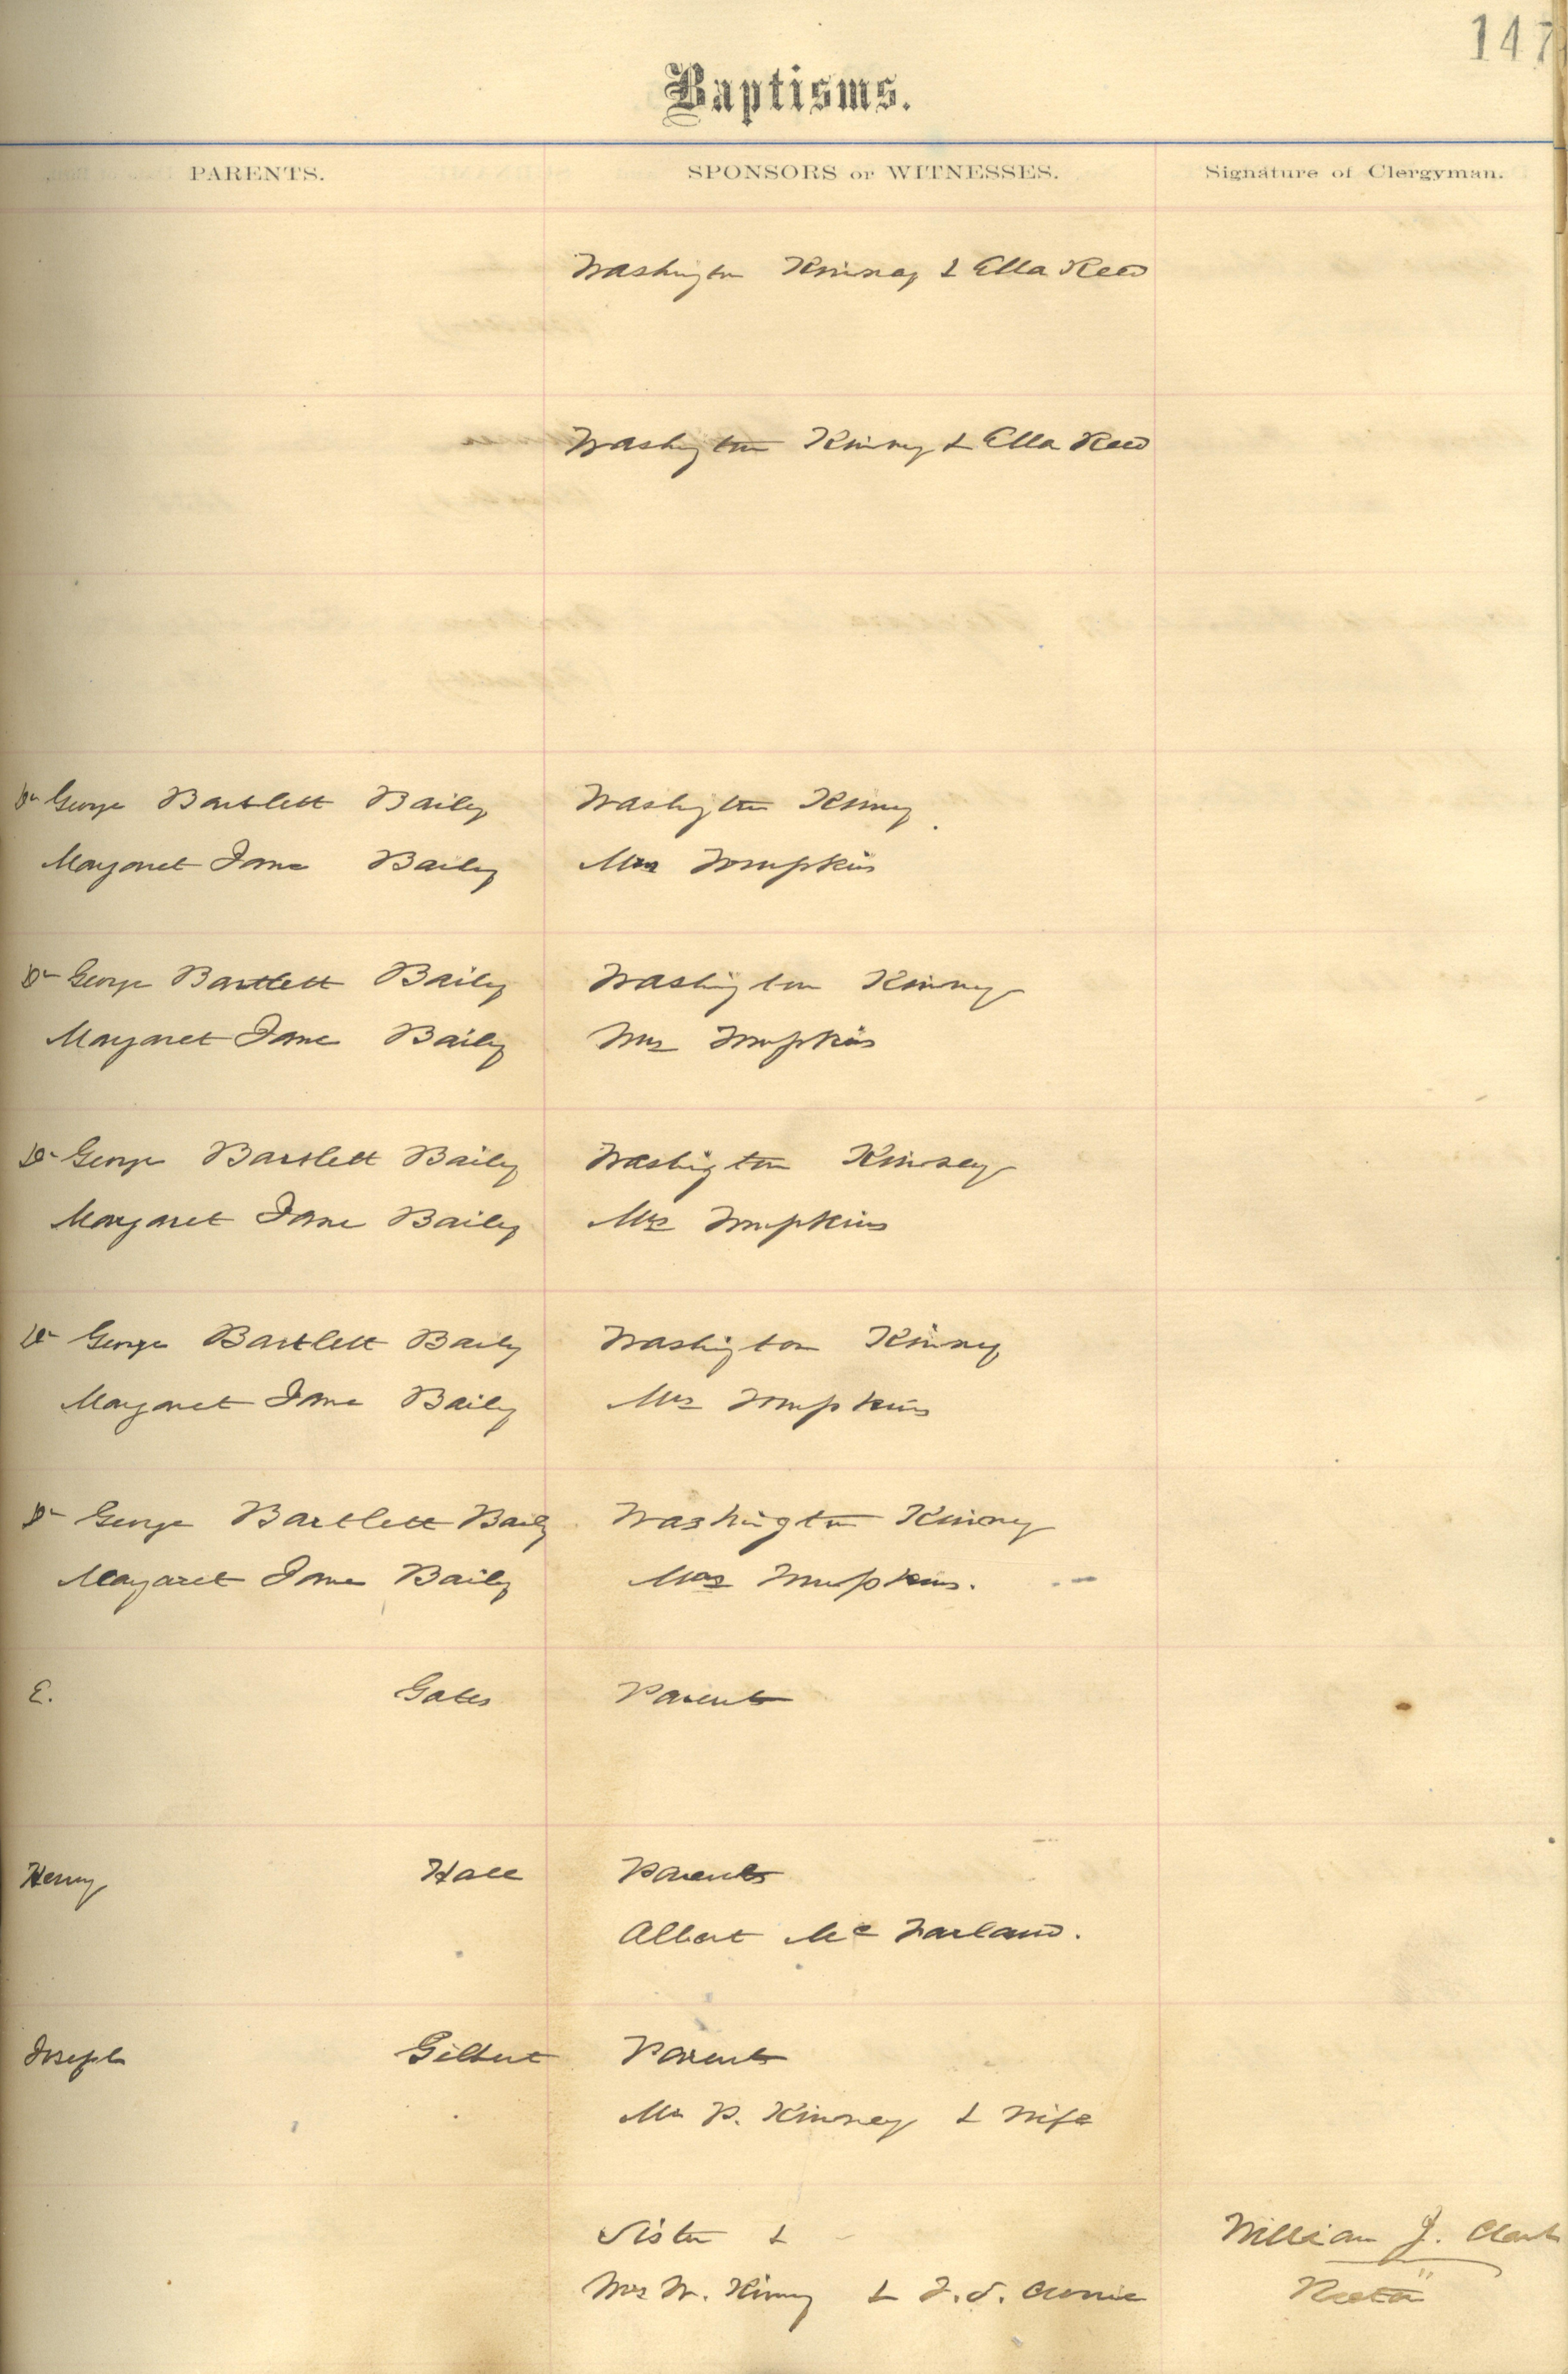 147
Baptisms.
PARENTS. SPONSORS or WITNESSES. Signature of Clergyman.
Washington Kinney & Ella Reed
Washington Kinney & Ella Reed
Dr George Bartlett Baily Washington Kinney.
Margaret Jane Baily Mrs Tompkins
Dr George Bartlett Baily Washington Kinney
Margaret Jane Baily Mrs Tompkins
Dr George Bartlett Baily Washington Kinney
Margaret Jane Baily Mrs Tompkins
Dr George Bartlett Baily Washington Kinney
Margaret Jane Baily Mrs Tompkins
Dr George Bartlett Baily Washington Kinney
Margaret Jane Baily Mrs Tompkins.
E. Gates Parents
Henry Hall Parents
Albert Mc Farland.
Joseph Gilbert Parents
Mr P. Kinney & Wife
Sister & William J. Clark
Mrs W. Kinney & F. S. Rector